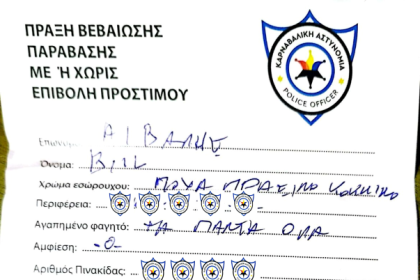 ΠΡΑΞΗ ΒΕΒΑΙΩΣΗΣ
ΠΑΡΑΒΑΣΗΣ
ΜΕ Ή ΧΩΡΙΣ
ΕΠΙΒΟΛΗ ΠΡΟΣΤΙΜΟΥ
ΚΑΡΝΑΒΑΛΙΚΗ ΑΣΤΥΝΟΜΙΑ
POLICE OFFICER
Όνομα: ΒΙΛ
Χρώμα εσώρουχου: ΠΟΥΑ ΠΡΑΣΙΝΟ ΚΟΚΚΙΝΟ
Περιφέρεια:
Αγαπημένο φαγητό: ΤΑ ΠΑΝΤΑ ΟΛΑ
Αμφίεση: -0-
Αριθμός Πινακίδας: